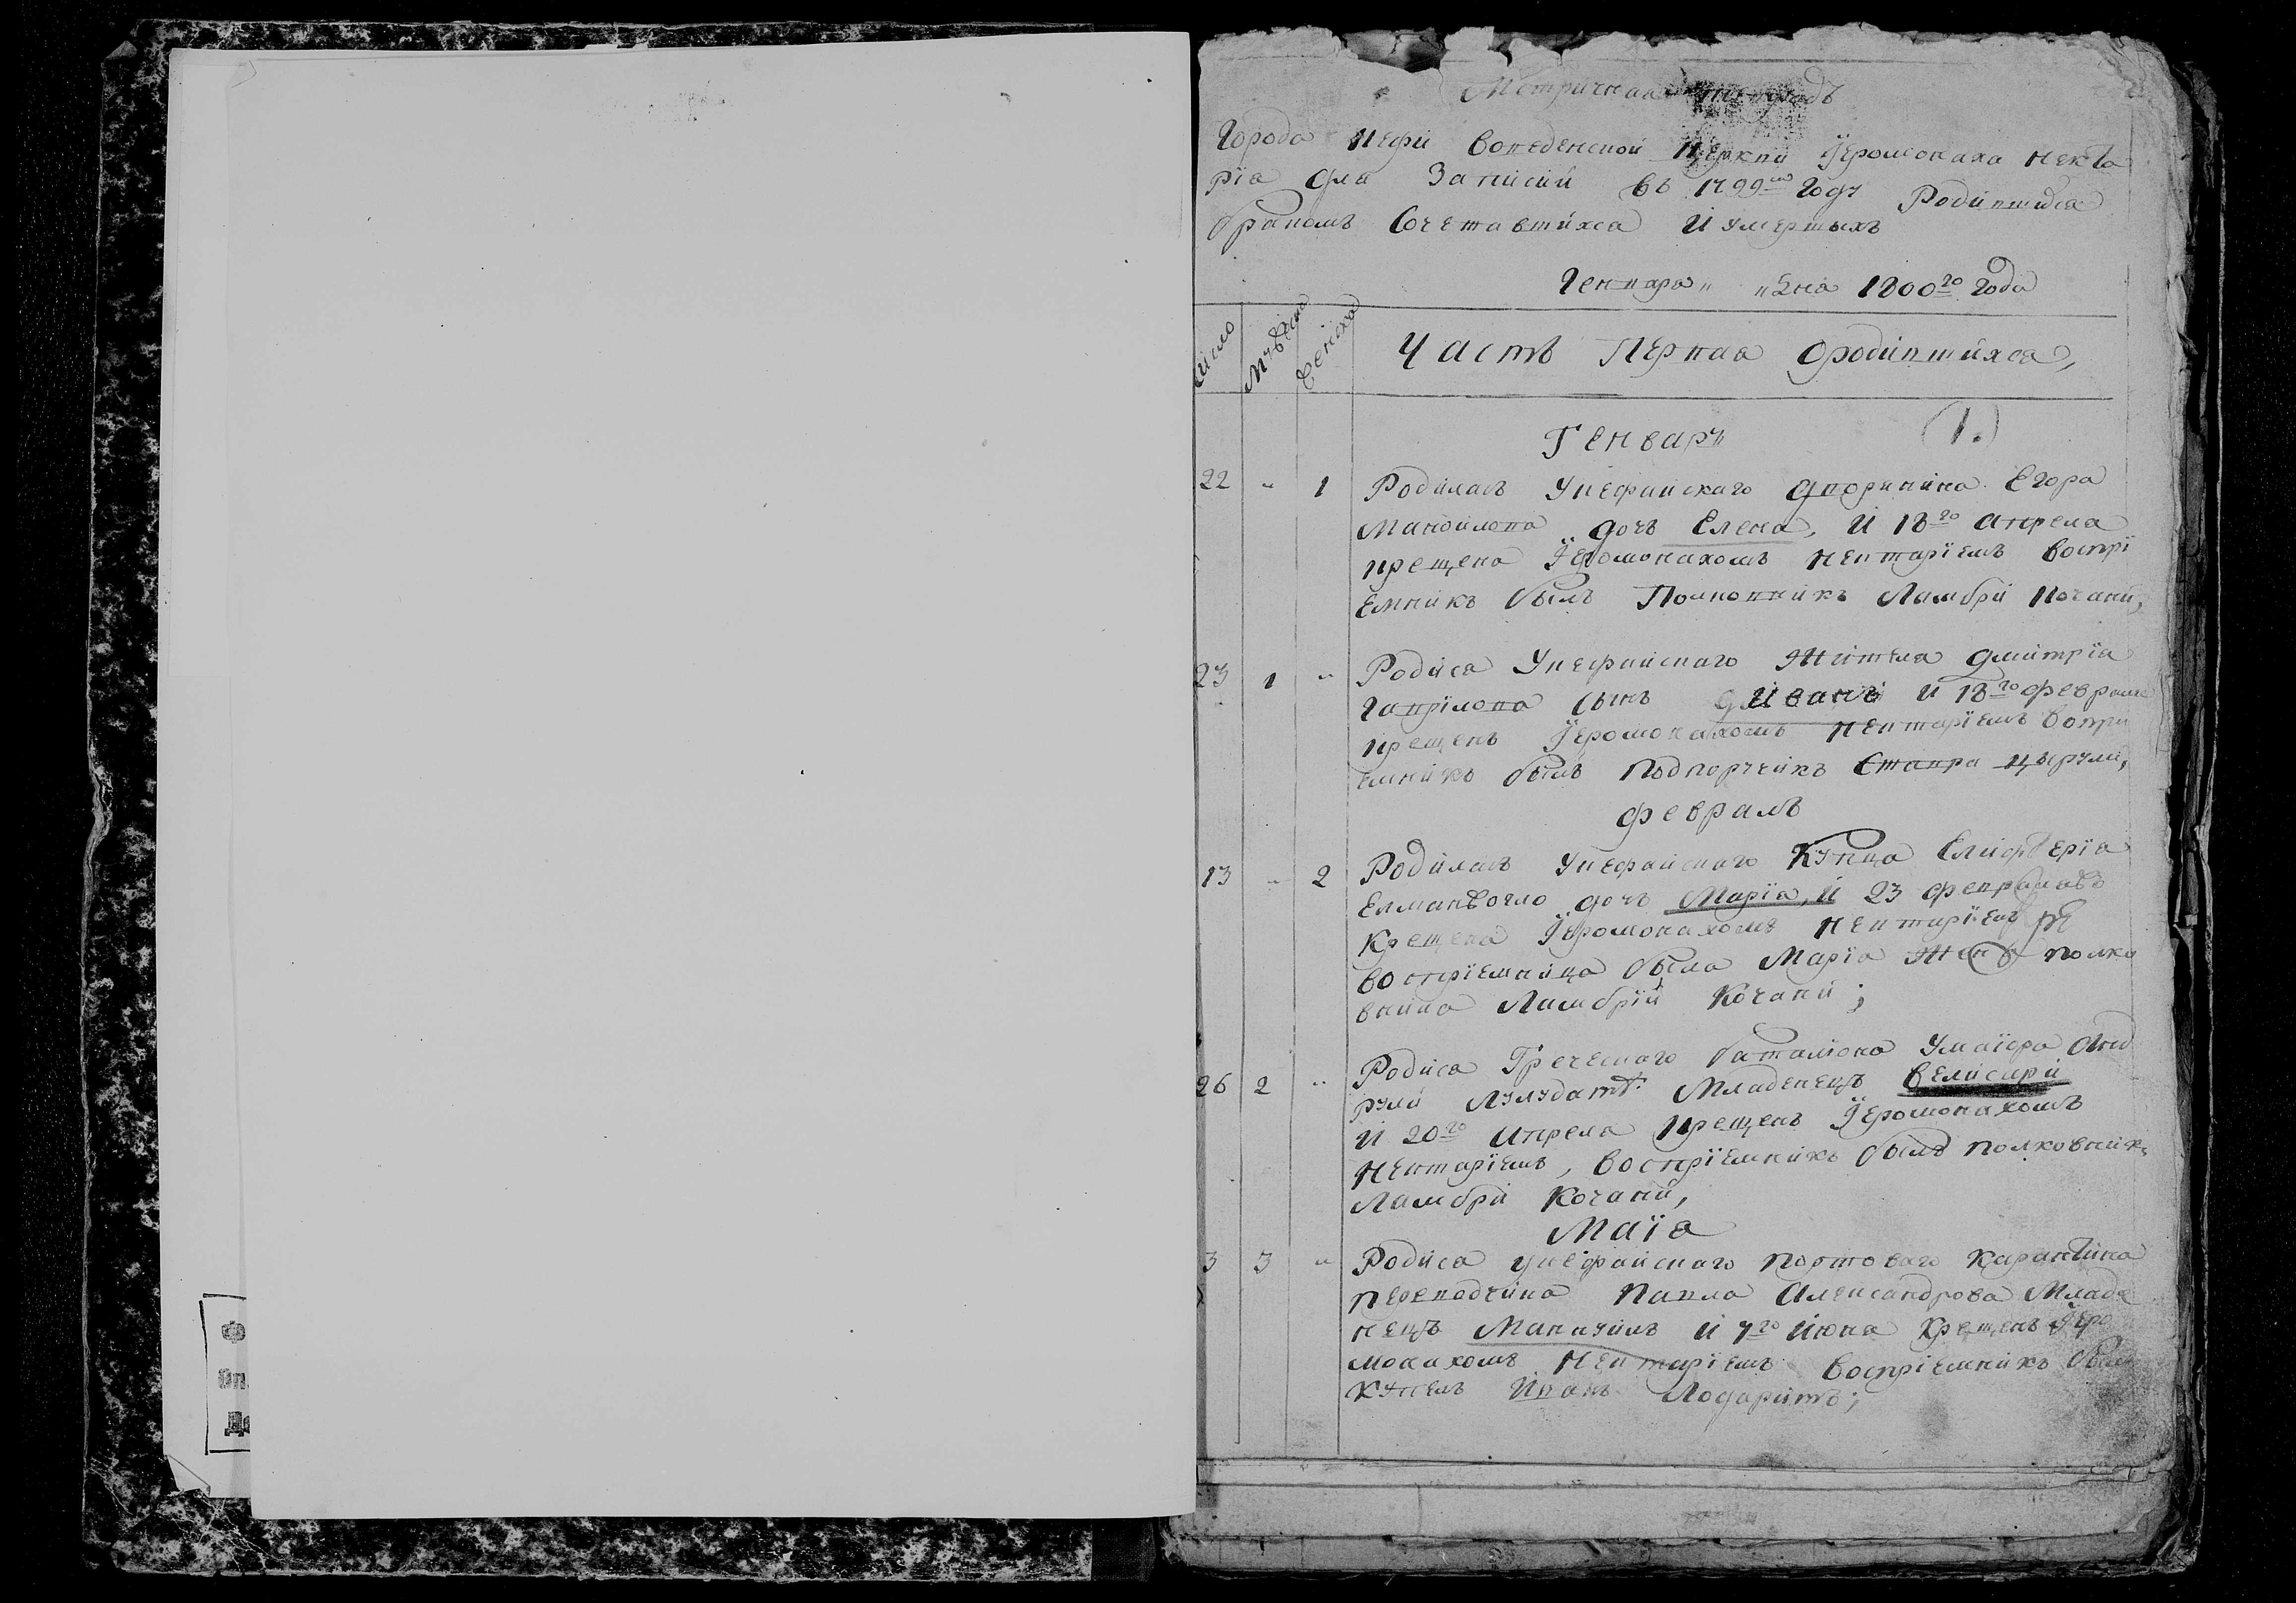 Метричная тетрадь
Города Кефи Воведенской Церкви Їеромонаха Некта
рїа для Записки въ 1799м Году Родившихса
бракомъ Сочетавшихса И умершыхъ
Генваря „ „ 2на 1800го Года
Число
Мужеска
Женска
Часть Первая ородившихса,
Генваря
(1.)
22 „ 1 Родилась Укефайскаго дворянина Егора
Манойлова дочь Елена, И 18го апреля
крещена Їеромонахомъ Нектарїемъ воспрї
емникъ былъ Полковникъ Ламбри Кочани,
23 1 „ Родиса Укефайскаго Жителя дмитрїа
Гаврилова сынъ Иванъ И 18го февраля
крещенъ Їеромонахомъ Нектарїемъ вопри
емникъ былъ Подпоручикъ Ставра Церули,
февраль
13 „ 2 Родилась Укефайскаго Купца Елифберїа
дочь Марїа, И 23 февраля
Крещена Їеромонахомъ Нектарїемъ
воспрїемница была Марїа Жена полко
вника Ламбрїи Кочани;
26 2 „ Родиса Греческаго баталїона Умаїора Анд
рули Младенецъ Велисари
И 20го Апреля Крещенъ Їеромонахомъ
Нектарїемъ, воспрїемникъ былъ полковникъ
Ламбри Кочани,
Маїа
3 3 „ Родиса укефайскаго портоваго Карантина
переводчика Павла Александрова Младе
нецъ Мануилъ И 7го Июня Крещенъ Їеро
монахомъ Нектарїемъ воспрїемникъ былъ
Иванъ
Ф
Оп.
Де